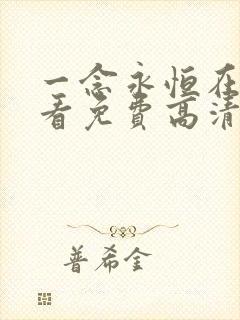 一念永恒在
看免费高清
普希金